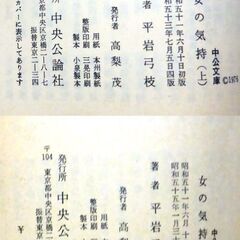 女の気持(上)
中公文庫 ©1976
昭和五十一年六月十日初版
昭和五十三年七月五日四版
著者 平岩弓枝
発行者 高梨茂
用紙 本州製紙
整版印刷 三晃印刷
製本 小泉製本
所 中央公論社
東京都中央区京橋二-八-七
振替東京二-三四
カバーに表示してあります
女の気持
中公文庫
昭和五十一年六月十
昭和五十五年一月三
著者 平岩弓
発行者 高梨
用紙 本州
整版印刷 三晃
製本 小泉
発行所 中央公
〒104 東京都中央区京
振替東